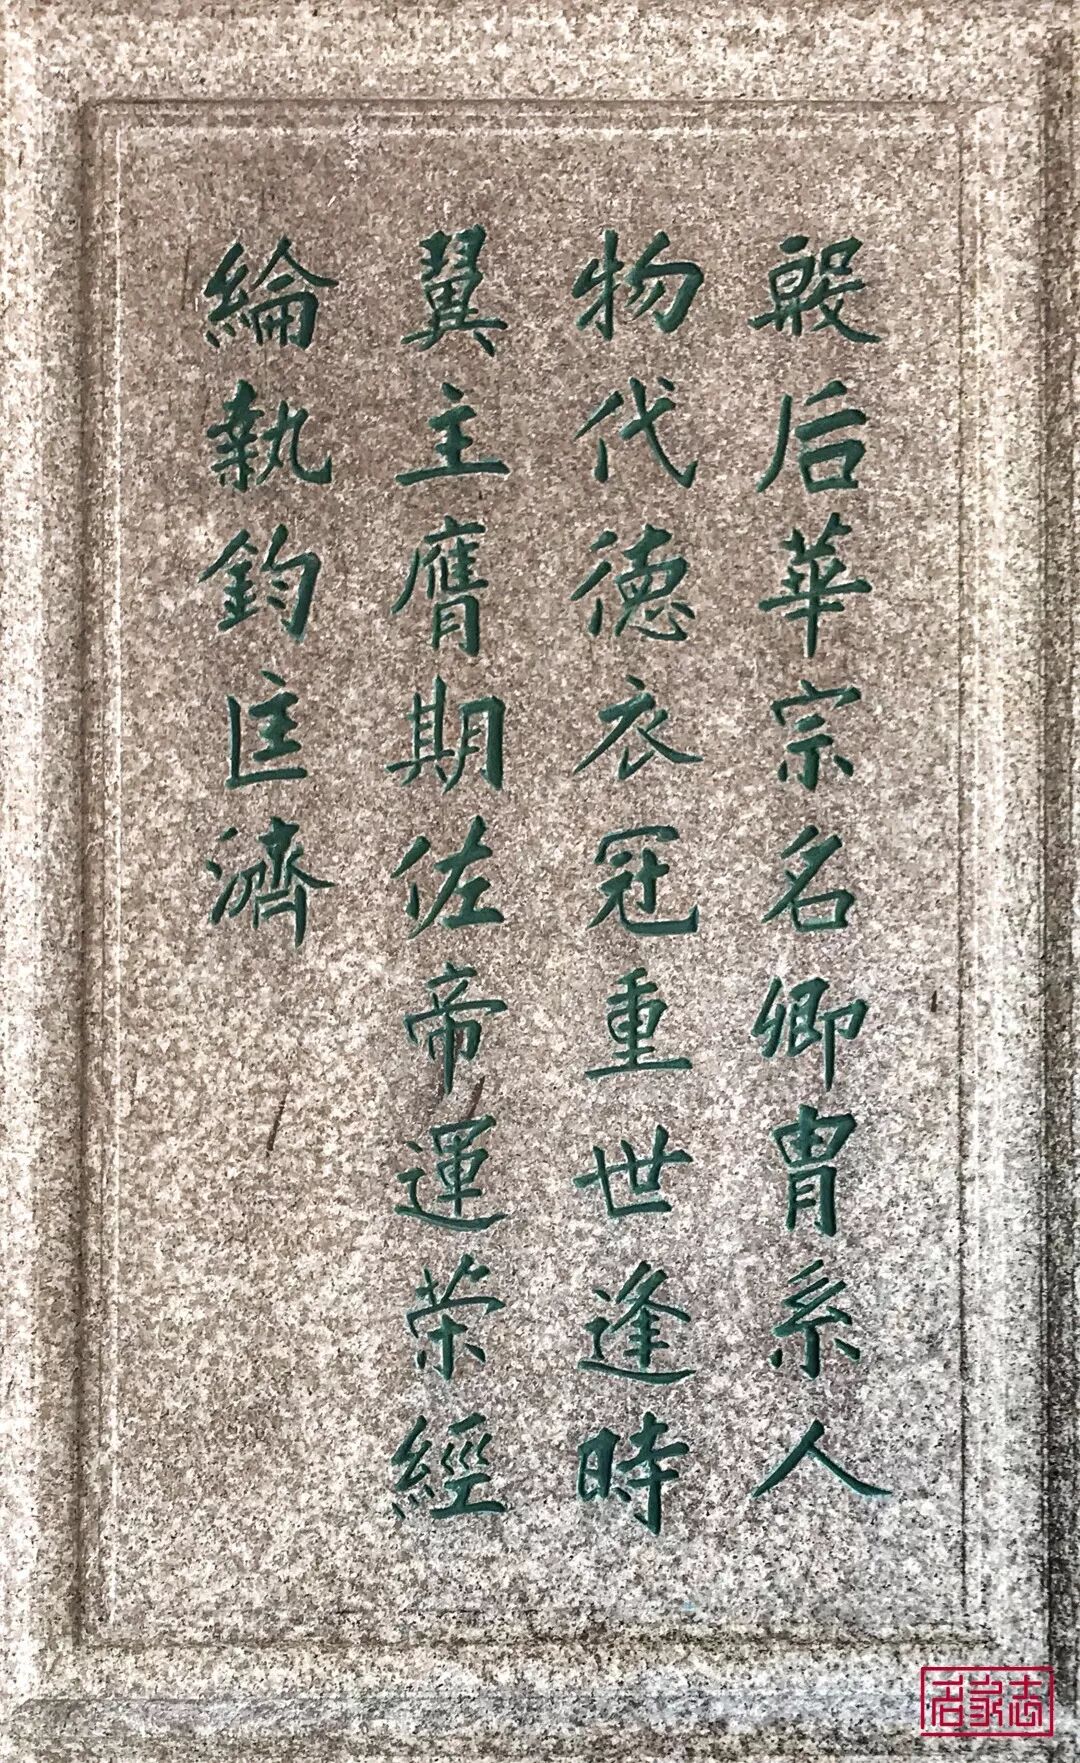 殷后華宗名卿胄系人
物代德衣冠重世逢時
翼主膺期佐帝運荣經
綸執鈞匡濟